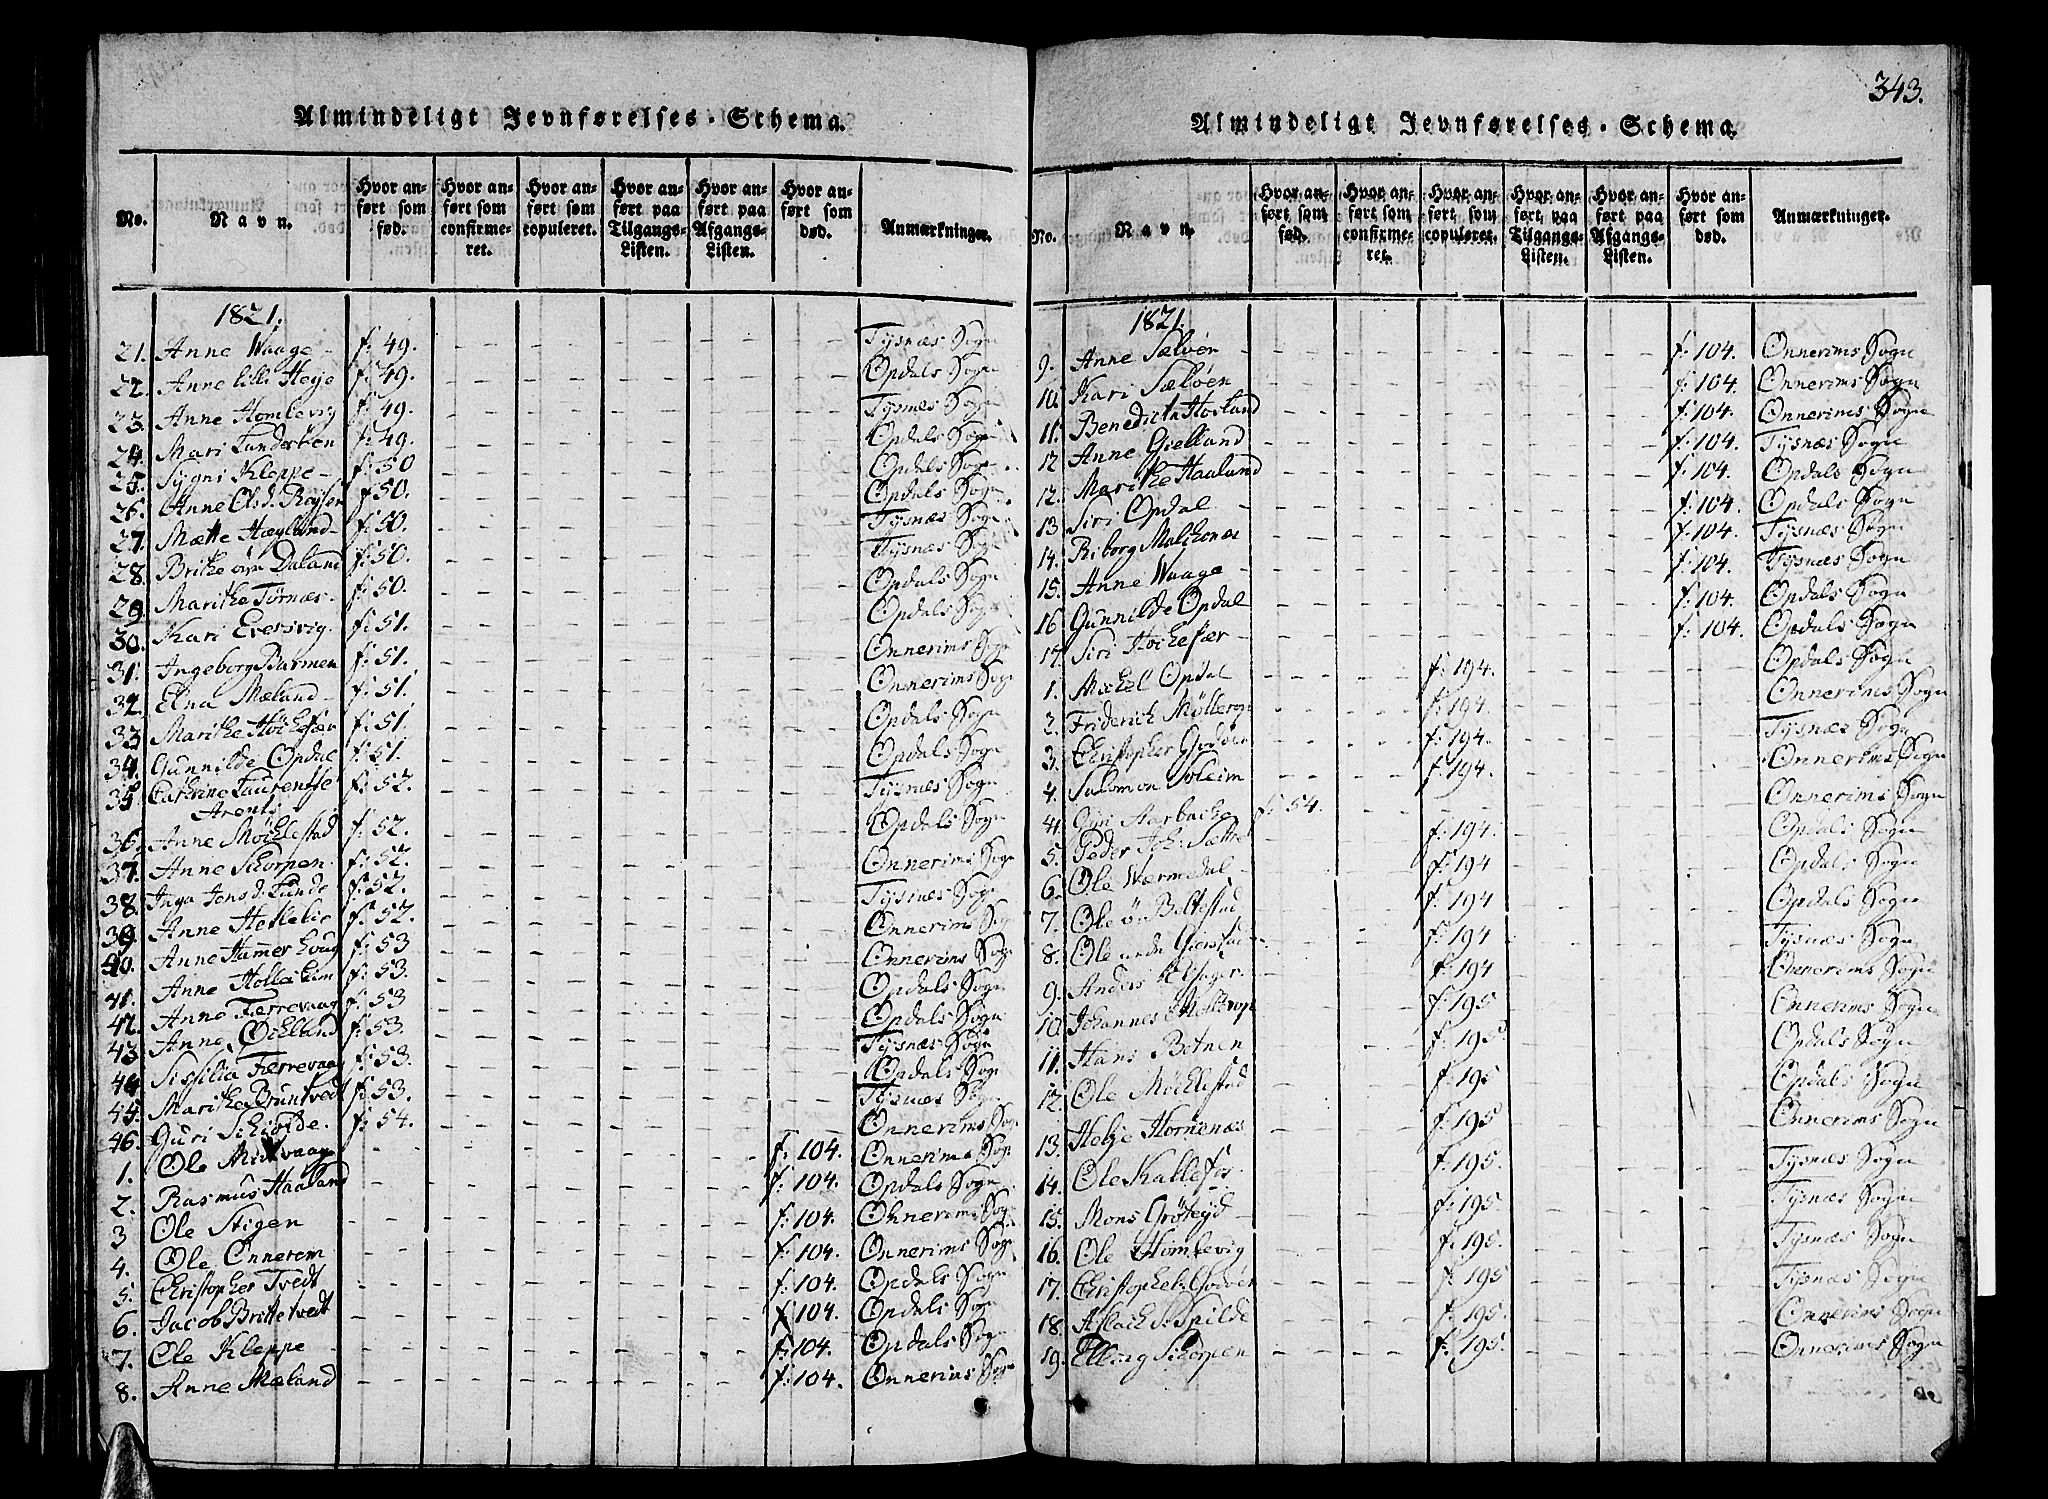 Almindeligt Jevnførelses-Schema.
No.
Navn.
Hvor anført som fød.
Hvor anført som confirmeret.
Hvor anført som copuleret.
Hvor anført paa Tilgangs-Listen.
Hvor anført paa Afgangs-Listen.
Hvor anført som død.
Anmærkninger.
1821.
21. Anne Waage f: 49. Tysnæs Sogn
22. Anne lille Heye f: 49. Opdals Sogn
23. Anne Homlevig f: 49. Tysnæs Sogn
24. Mari Lunderböen f: 49. Opdals Sogn
25. Sygni Kleppe f: 50 Opdals Sogn
26. Anne Olsd. f: 50. Opdals Sogn
27. Mætte Hægland f: 50. Tysnæs Sogn
28. Brithe Daland f: 50. Tysnæs Sogn
29. Marithe Tornæs. f: 50. Opdals Sogn
30. Kari Eversvig. f: 51. Opdals Sogn
31. Ingeborg Barmen f: 51. Onnerims Sogn
32. Elna Mæland f: 51. Onnerims Sogn
33. Marithe Höchefær f: 51. Opdals Sogn
34. Gunnilde Opdal f: 51. Opdals Sogn
35. Cathrine Laurentse Arents f: 52. Tysnæs Sogn
36. Anne Möchlestad f: 52. Opdals Sogn
37. Anne Skorpen. f: 52. Onnerims Sogn
38. Inga Jensd: Lunde f: 52. Tysnæs Sogn
39. Anne Hetlelie f: 52. Onnerims Sogn
40. Anne Hammerhoug f: 53 Onnerims Sogn
41. Anne Hollekim f: 53. Opdals Sogn
42. Anne Færrevaag f: 53 Opdals Sogn
43. Anne Ochland f: 53. Tysnæs Sogn
44. Sissilia Færrevaag f: 53. Opdals Sogn
45. Marithe Bruntvedt f: 53. Tysnæs Sogn
46. Guri Schiorde. f: 54. Onnerims Sogn
1. Ole Midtvaage f: 104. Onnerims Sogn
2. Rasmus Haaland f: 104. Opdals Sogn
3 Ole Stigen f: 104. Onnerims Sogn
4. Ole Onnerem f: 104. Onnerims Sogn
5. Christopher Tvedt f: 104. Opdals Sogn
6. Jacob Brittetvedt f: 104. Opdals Sogn
7. Ole Kleppe f: 104. Opdals Sogn
8. Anne Mæland f: 104. Onnerims Sogn
343.
Almindeligt Jevnførelses-Schema.
No.
Navn.
Hvor anført som fød.
Hvor anført som confirmeret.
Hvor anført som copuleret.
Hvor anført paa Tilgangs-Listen.
Hvor anført paa Afgangs-Listen.
Hvor anført som død.
Anmærkninger.
1821.
9. Anne Sælöen f: 104. Onnerims Sogn
10. Kari Sælöen f: 104. Onnerims Sogn
11. Benedicta Hovland f: 104. Onnerims Sogn
12 Anne Gielland f: 104. Tysnæs Sogn
12. Marithe Haaland f: 104. Opdals Sogn
13 Siri Opdal f: 104. Opdals Sogn
14. Riborg Malchenæs f: 104. Tysnæs Sogn
15. Anne Waage f: 104. Tysnæs Sogn
16 Gunnilde Opdal f: 104. Opdals Sogn
17. Siri Höchefær f: 104. Opdals Sogn
1. Michel Opdal f: 194. Opdals Sogn
2. Friderich Möllerop f: 194. Onnerims Sogn
3. Christopher Godöen f: 194. Tysnæs Sogn
4. Salomon Soleim f: 194. Onnerims Sogn
4. Guri Aarbache f: 54. Onnerims Sogn
5. Peder Joh: Sættre f: 194. Opdals Sogn
6. Ole Wærmedal f: 194 Opdals Sogn
7. Ole ön Beltestad f: 194 Opdals Sogn
8. Ole nedre Gierstad f: 194 Tysnæs Sogn
9. Anders f: 194 Onnerims Sogn
10. Johannes Möllerop f: 195 Onnerims Sogn
11. Hans Botnen f: 195. Opdals Sogn
12. Ole Möchlestad f: 195 Opdals Sogn
13. Helje Hornenæs f: 195 Onnerims Sogn
14. Ole Kallefos. f: 195. Tysnæs Sogn
15. Mons Gröteyd f: 195. Tysnæs Sogn
16. Ole Homlevig f: 195. Tysnæs Sogn
17. Christopher Godöen f: 195 Tysnæs Sogn
18. Aslach S: Spilde f: 195. Onnerims Sogn
19. Elling Skorpen f: 195. Onnerims Sogn